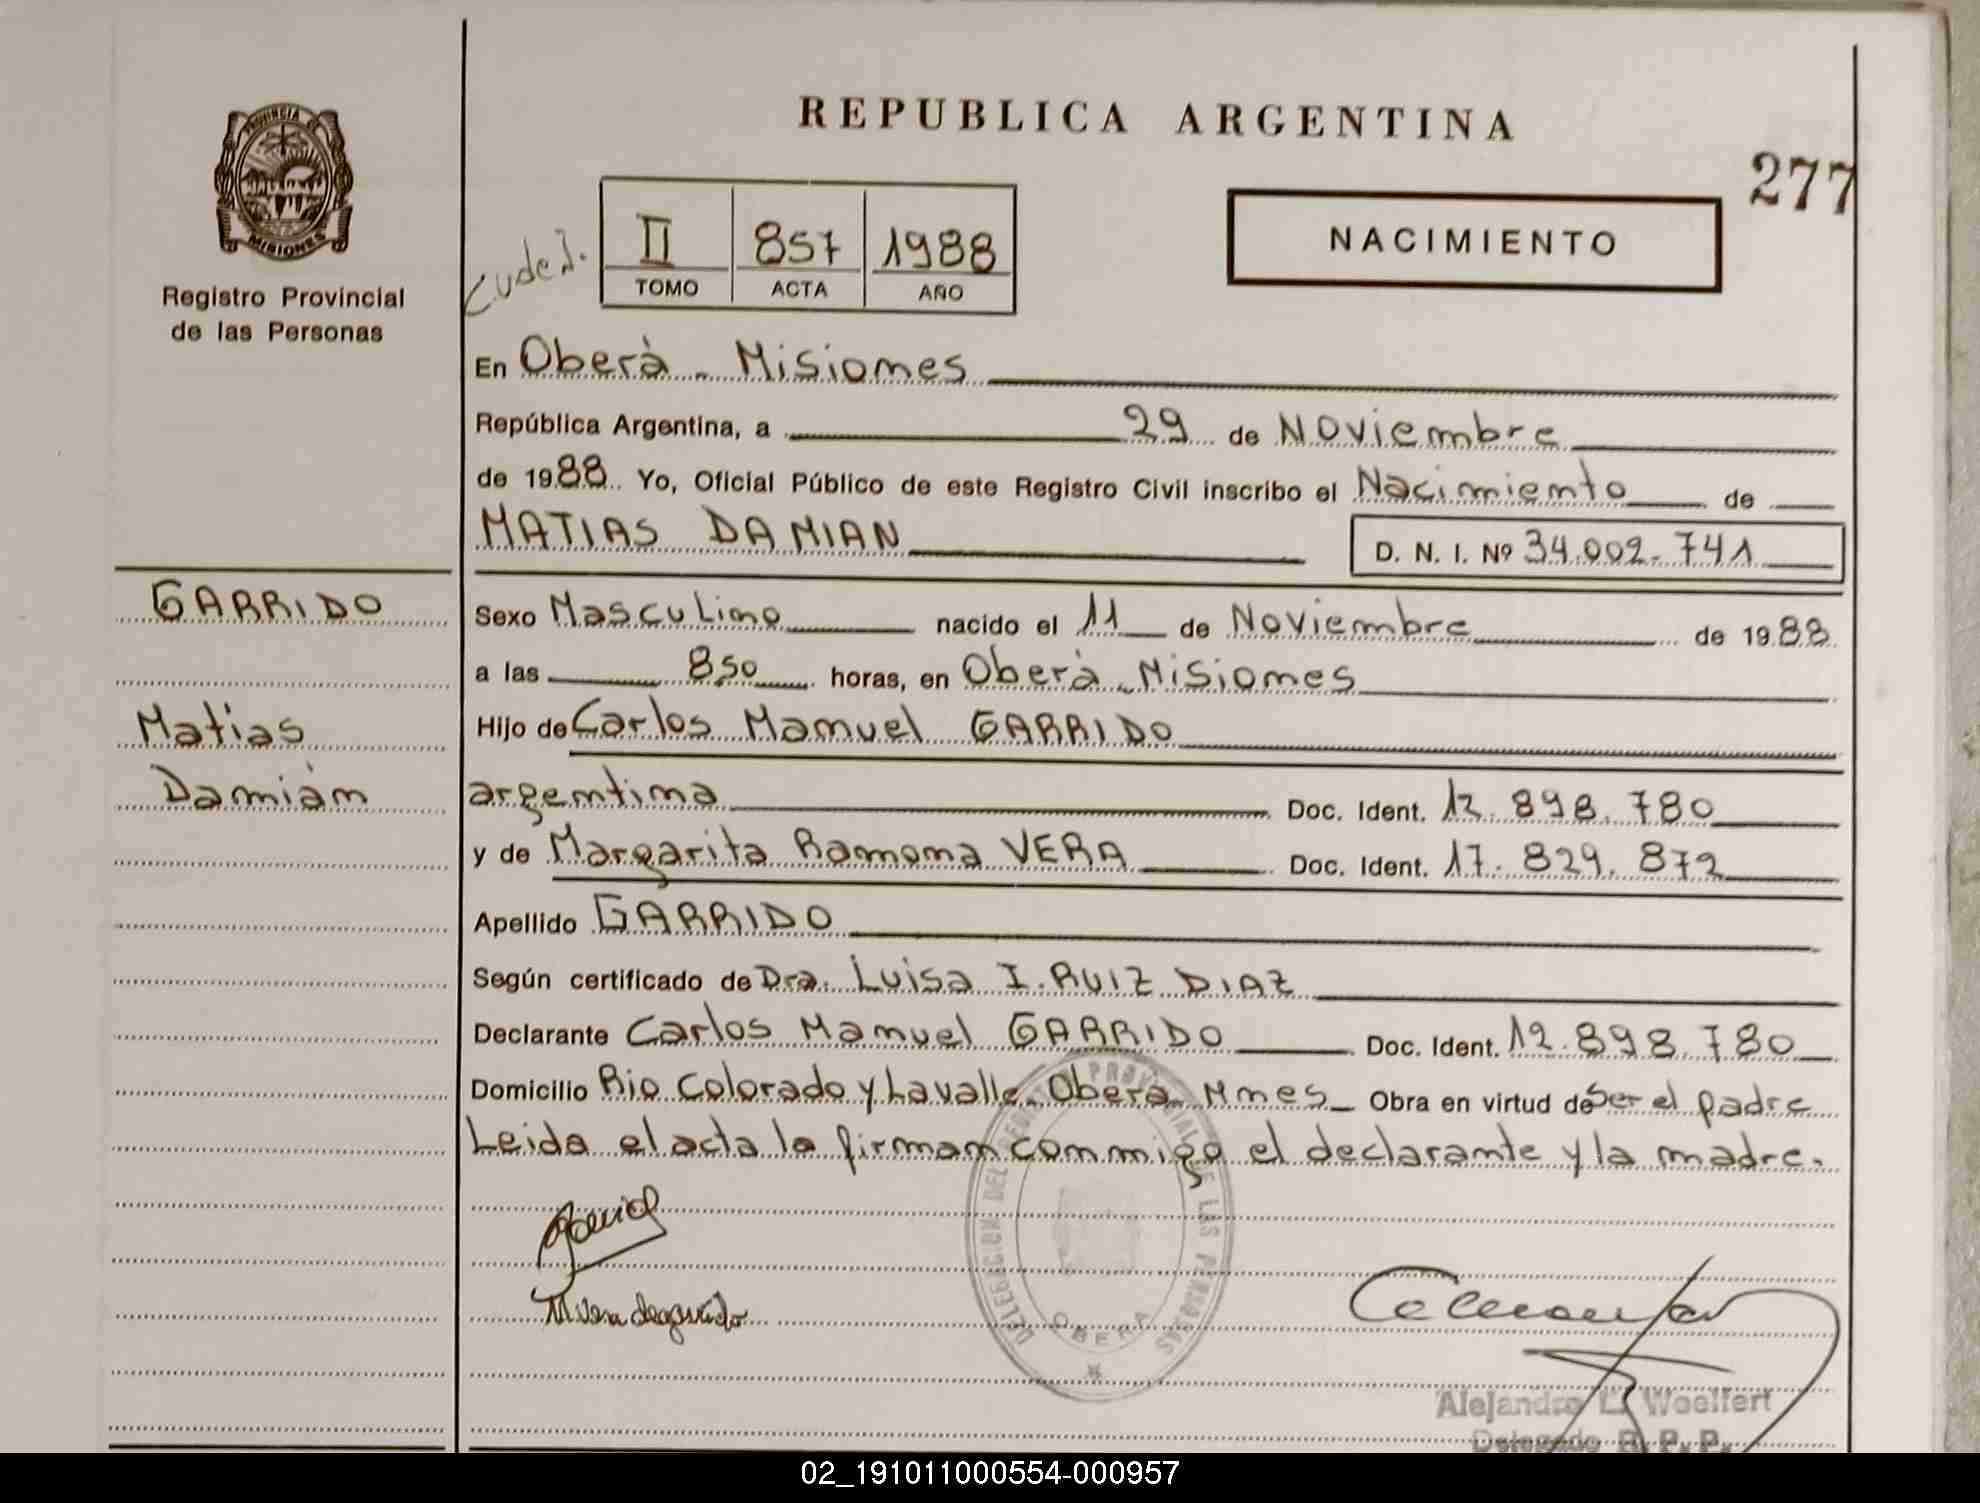 REPUBLICA ARGENTINA
277
PROVINCIA DE
MISIONES
Registro Provincial
de las Personas
II 857 1988
TOMO ACTA AÑO
NACIMIENTO
En Oberà - Misiones
República Argentina, a 29 de Noviembre
de 1988 Yo, Oficial Público de este Registro Civil inscribo el Nacimiento de
MATIAS DAMIAN
D. N. I. Nº 34.002.741
GARRIDO
Matias
Damián
Sexo Masculino nacido el 11 de Noviembre de 1988
a las 8,50 horas, en Oberà - Misiones
Hijo de Carlos Manuel GARRIDO
argentina Doc. Ident. 12.898.780
y de Margarita Ramona VERA Doc. Ident. 17.829.872
Apellido GARRIDO
Según certificado de Dra. Luisa I. RUIZ DIAZ
Declarante Carlos Manuel GARRIDO Doc. Ident. 12.898.780
Domicilio Rio Colorado y Lavalle - Oberà - Mnes - Obra en virtud de Ser el padre
Leida el acta la firman conmigo el declarante y la madre.
DELEGACION DEL REGISTRO PROVINCIAL DE LAS PERSONAS
OBERA
M Vera de garrido
Alejandro L. Woelfert
Delegado R. P. P.
02_191011000554-000957